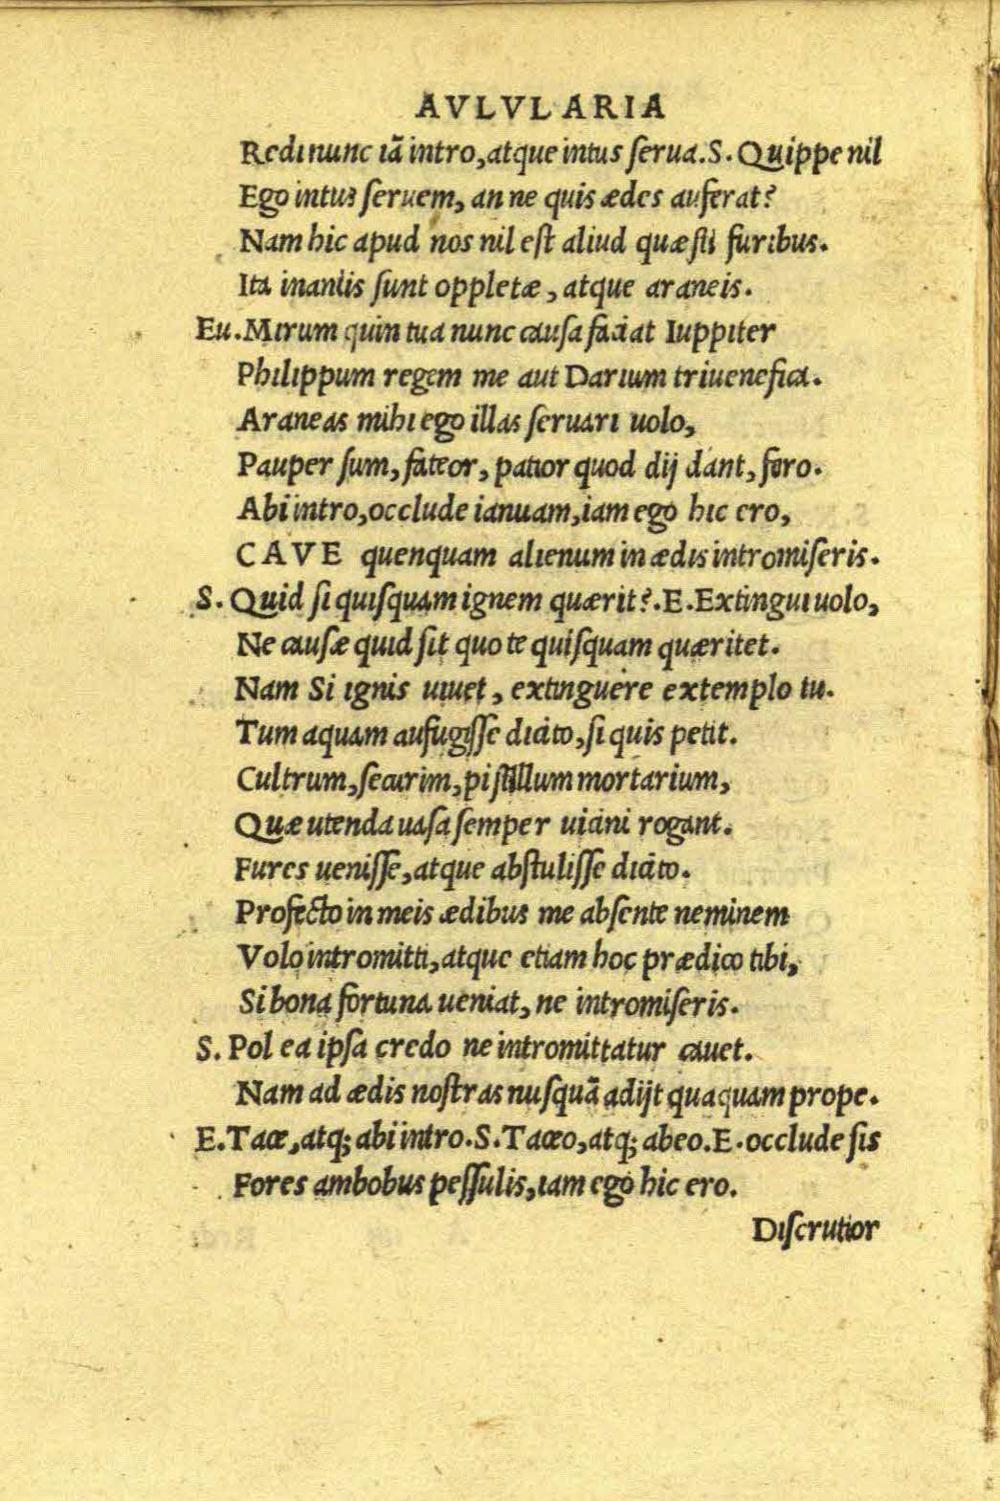 AVLVLARIA
Redi nunc iã intro, atque intus ſerua. S. Quippe nil
Ego intus ſeruem, an ne quis ædes auferat?
Nam hic apud nos nil eſt aliud quæſti furibus.
Ita inaniis ſunt oppletæ, atque araneis.
Eu. Mirum quin tua nunc cauſa faciat Iuppiter
Philippum regem me aut Darium triuenefica.
Araneas mihi ego illas ſeruari uolo,
Pauper ſum, fateor, patior quod dij dant, fero.
Abi intro, occlude ianuam, iam ego hic ero,
CAVE quenquam alienum in ædis intromiſeris.
S. Quid ſi quiſquam ignem quærit?. E. Extingui uolo,
Ne cauſæ quid ſit quo te quiſquam quæritet.
Nam Si ignis uiuet, extinguere extemplo tu.
Tum aquam aufugiſſe dicito, ſi quis petit.
Cultrum, ſecurim, piſtillum mortarium,
Quæ utenda uaſa ſemper uicini rogant.
Fures ueniſſe, atque abſtuliſſe dicito.
Profecto in meis ædibus me abſente neminem
Volo intromitti, atque etiam hoc prædico tibi,
Si bona fortuna ueniat, ne intromiſeris.
S. Pol ea ipſa credo ne intromittatur cauet.
Nam ad ædis noſtras nuſquã adijt quaquam prope.
E. Tace, atq; abi intro. S. Taceo, atq; abeo. E. occlude ſis
Fores ambobus peſſulis, iam ego hic ero.
Diſcrutior